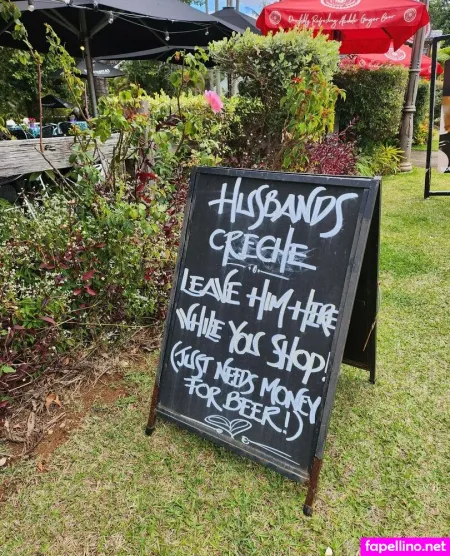 Deliciously Refreshing Middle Ginger Beer
HUSBANDS
CRECHE
LEAVE HIM HERE
WHILE YOU SHOP!
(JUST NEEDS MONEY
FOR BEER!)
fapellino.net